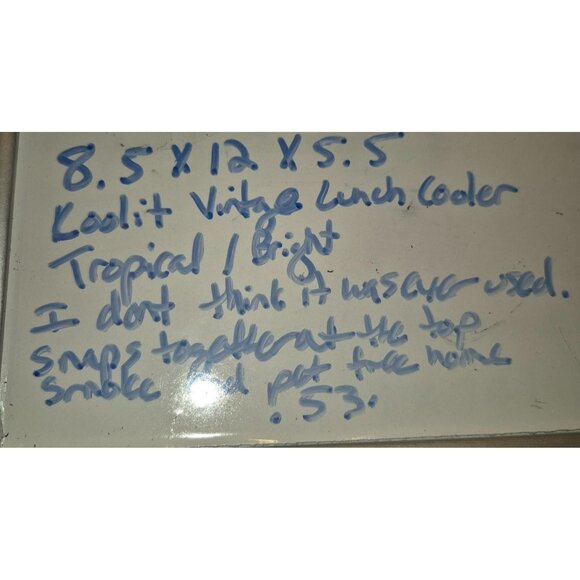 8.5 X 12 X 5.5
Koolit Vintage Lunch Cooler
Tropical / Bright
I dont think it was ever used.
snaps together at the top
smoke and pet free home
.53.